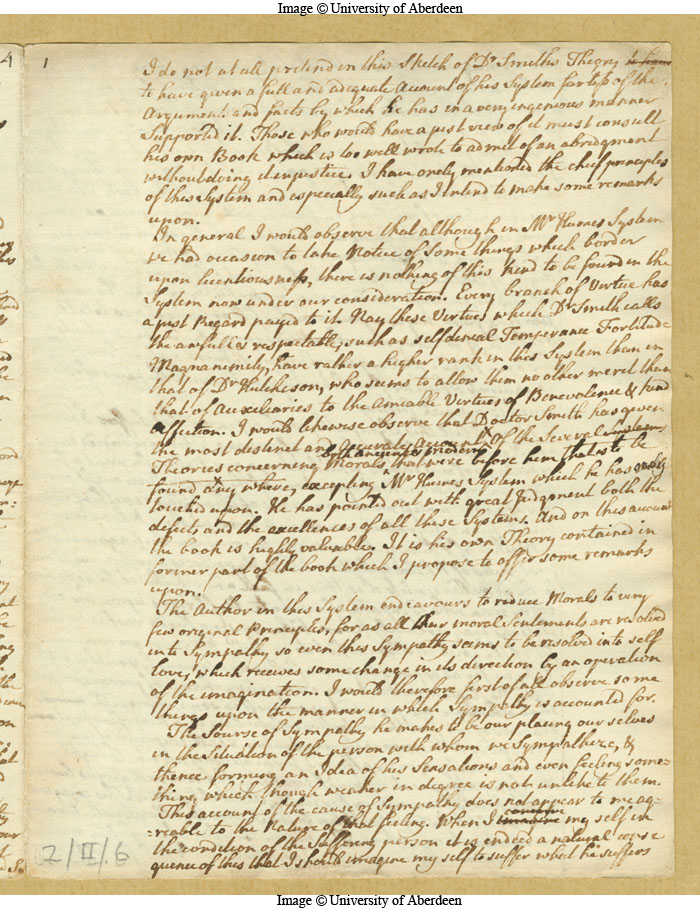 Image © University of Aberdeen
1
I do not at all pretend in this Sketch of Dr Smiths Theory to have
to have given a full and adequate Account of his System far less of the
Arguments and facts by which he has in a very ingenious manner
Supported it. Those who would have a just view of it must consult
his own Book which is too well wrote to admit of an abridgment
without doing it injustice. I have onely mentioned the chief principles
of this System and especially such as I intend to make some remarks
upon.
In general I would observe that although in Mr Humes System
we had occasion to take Notice of some things which border
upon licentiousness, there is nothing of this kind to be found in the
System now under our consideration. Every branch of Virtue has
a just Regard payed to it. Nay these Virtues which Dr Smith calls
the awfull & respectable, such as selfdenial Temperance Fortitude
Magnanimity, have rather a higher rank in this System than in
that of Dr Hutcheson, who seems to allow them no other merit than
that of auxiliaries to the Amiable Virtues of Benevolence & kind
affection. I would likewise observe that Doctor Smith has given
the most distinct and accurate Account of the Several Systems
both ancient & modern
Theories concerning Morals that were before him, that is to be
found any where, excepting Mr Humes System which he has onely
touched upon. He has pointed out with great Judgment both the
defects and the excellences of all these Systems. And on this account
the book is highly valuable. It is his own Theory contained in
former part of the book which I propose to offer some remarks
upon.
The Author in this System endeavours to reduce Morals to very
few original Principles, for as all our moral Sentiments are resolved
into Sympathy so even this Sympathy seems to be resolved into self
love, which receives some change in its direction by an operation
of the imagination. I would therefore first of all observe some
things upon the manner in which Sympathy is accounted for.
The Sourse of Sympathy he makes to be our placing our selves
in the Situation of the person with whom we Sympathize, &
thence forming an Idea of his Sensations and even feeling some=
thing which though weaker in degree is not unlike to them.
This account of the cause of Sympathy does not appear to me ag=
=reable to the Nature of that feeling. When I imagine my self in
the condition of the Suffering person it is indeed a natural conse
quence of this that I should imagine my self to suffer what he suffers
2/II/6
Image © University of Aberdeen